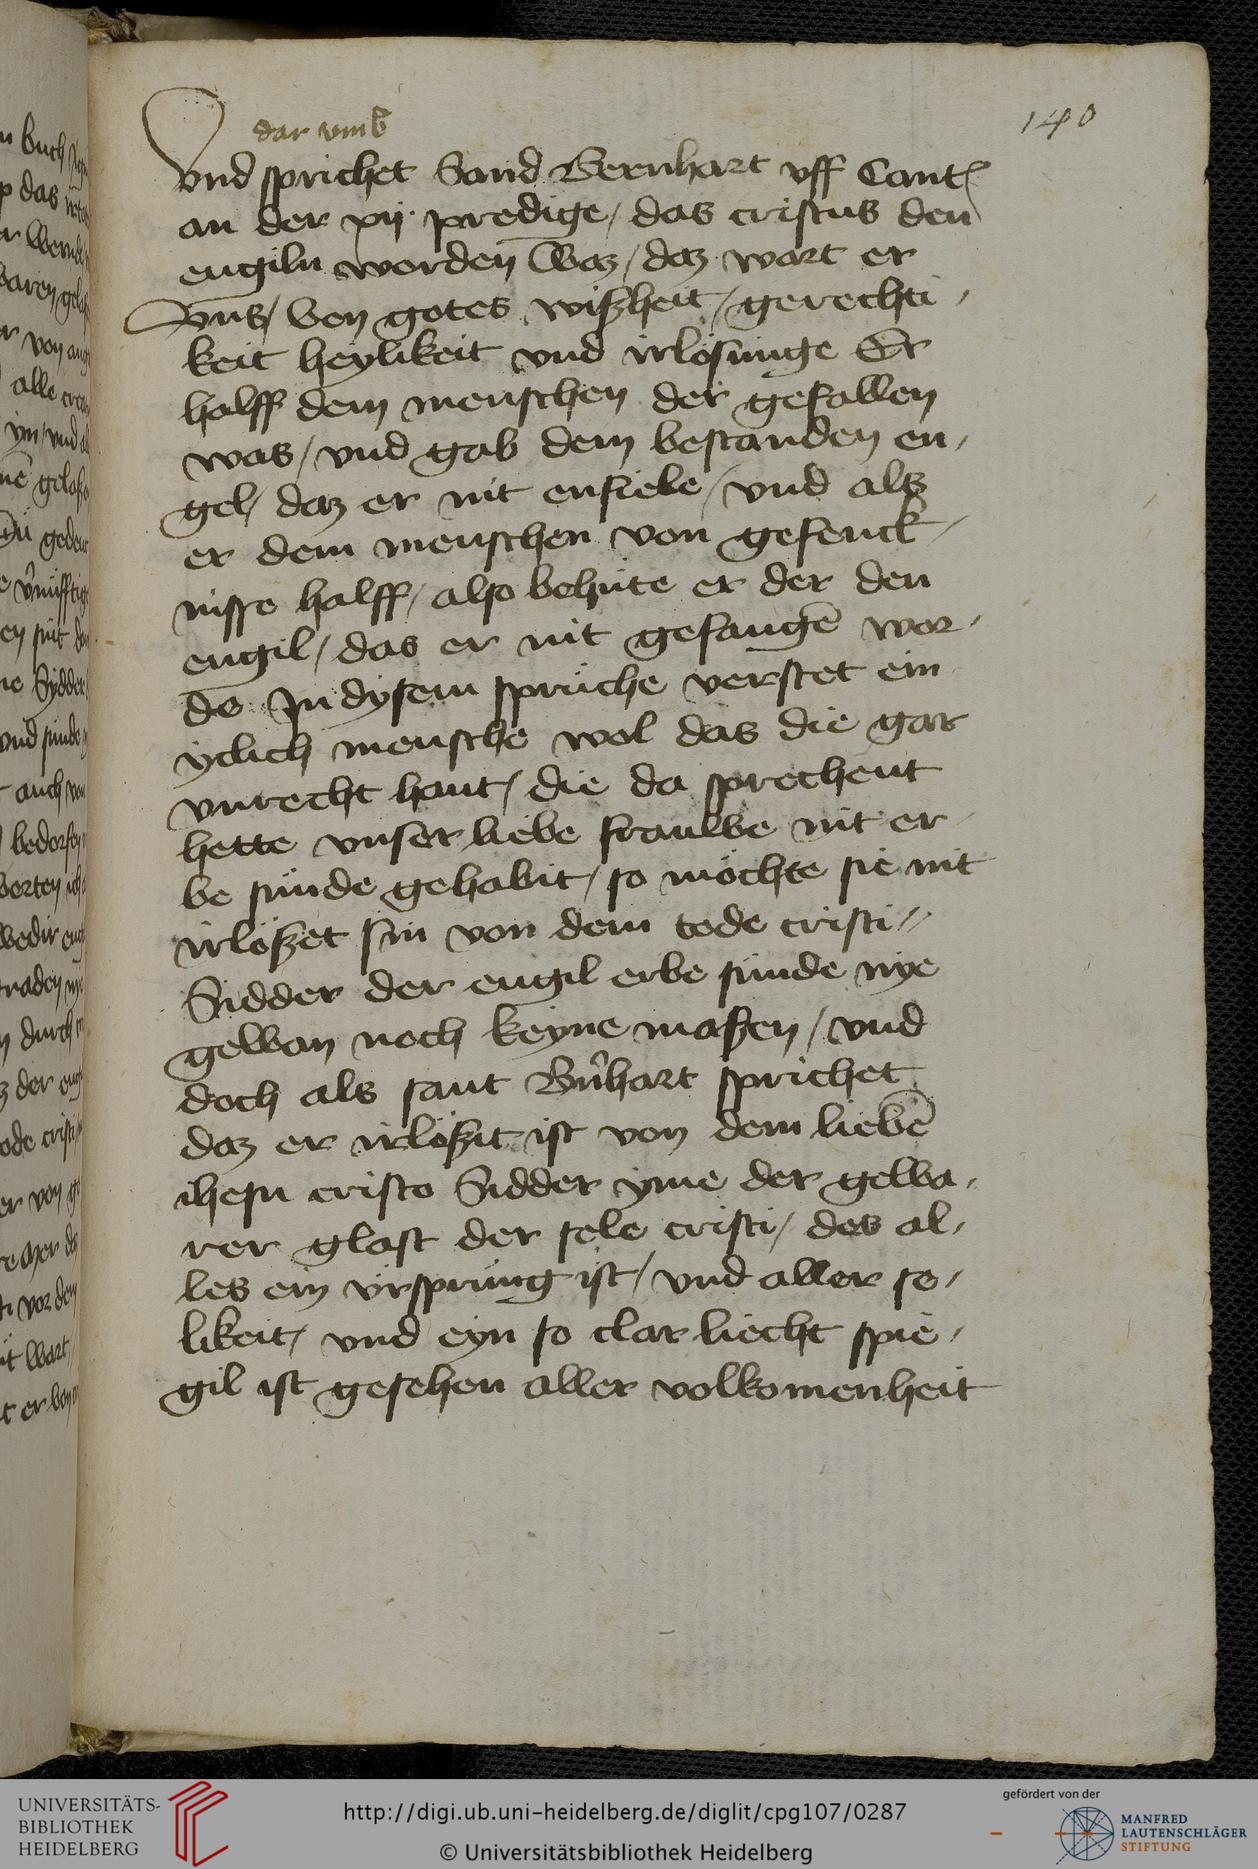 140
dar vmb
vnd sprichet Sand Bernhart vff Cant
an der xij predige / das cristus den
engiln worden waz / daz wart er
vns / von gotes wißheit / gerechti
keit heylikeit vnd irlösunge Er
halff dem menschen der gefallen
was / vnd gab dem bestanden en
gel / daz er nit enfiele / vnd alß
er dem menschen von gefenck
nisse halff / also behute er der den
engil / das er nit gefangē wor
de In dysem spruche verstet ein
yclich mensche wol das die gar
vnrecht hant / die da sprechent
hette vnser liebe frauwe nit er
be sunde gehabit / so möchte sie nit
irlößet sin von dem tode cristi //
Sidder der engil erbe sunde nye
gewan noch keyne maßen / vnd
doch als sant Bn̄hart sprichet
daz er irlößit ist von dem liebē
ihesu cristo Sidder yme der gewa
rer glast der sele cristi / des al
les ein vrsprung ist / vnd aller se
likeit / vnd eyn so clar liecht spie
gil ist gesehen aller volkomenheit
UNIVERSITÄTS-
BIBLIOTHEK
HEIDELBERG
http://digi.ub.uni-heidelberg.de/diglit/cpg107/0287
© Universitätsbibliothek Heidelberg
gefördert von der
MANFRED
LAUTENSCHLÄGER
STIFTUNG